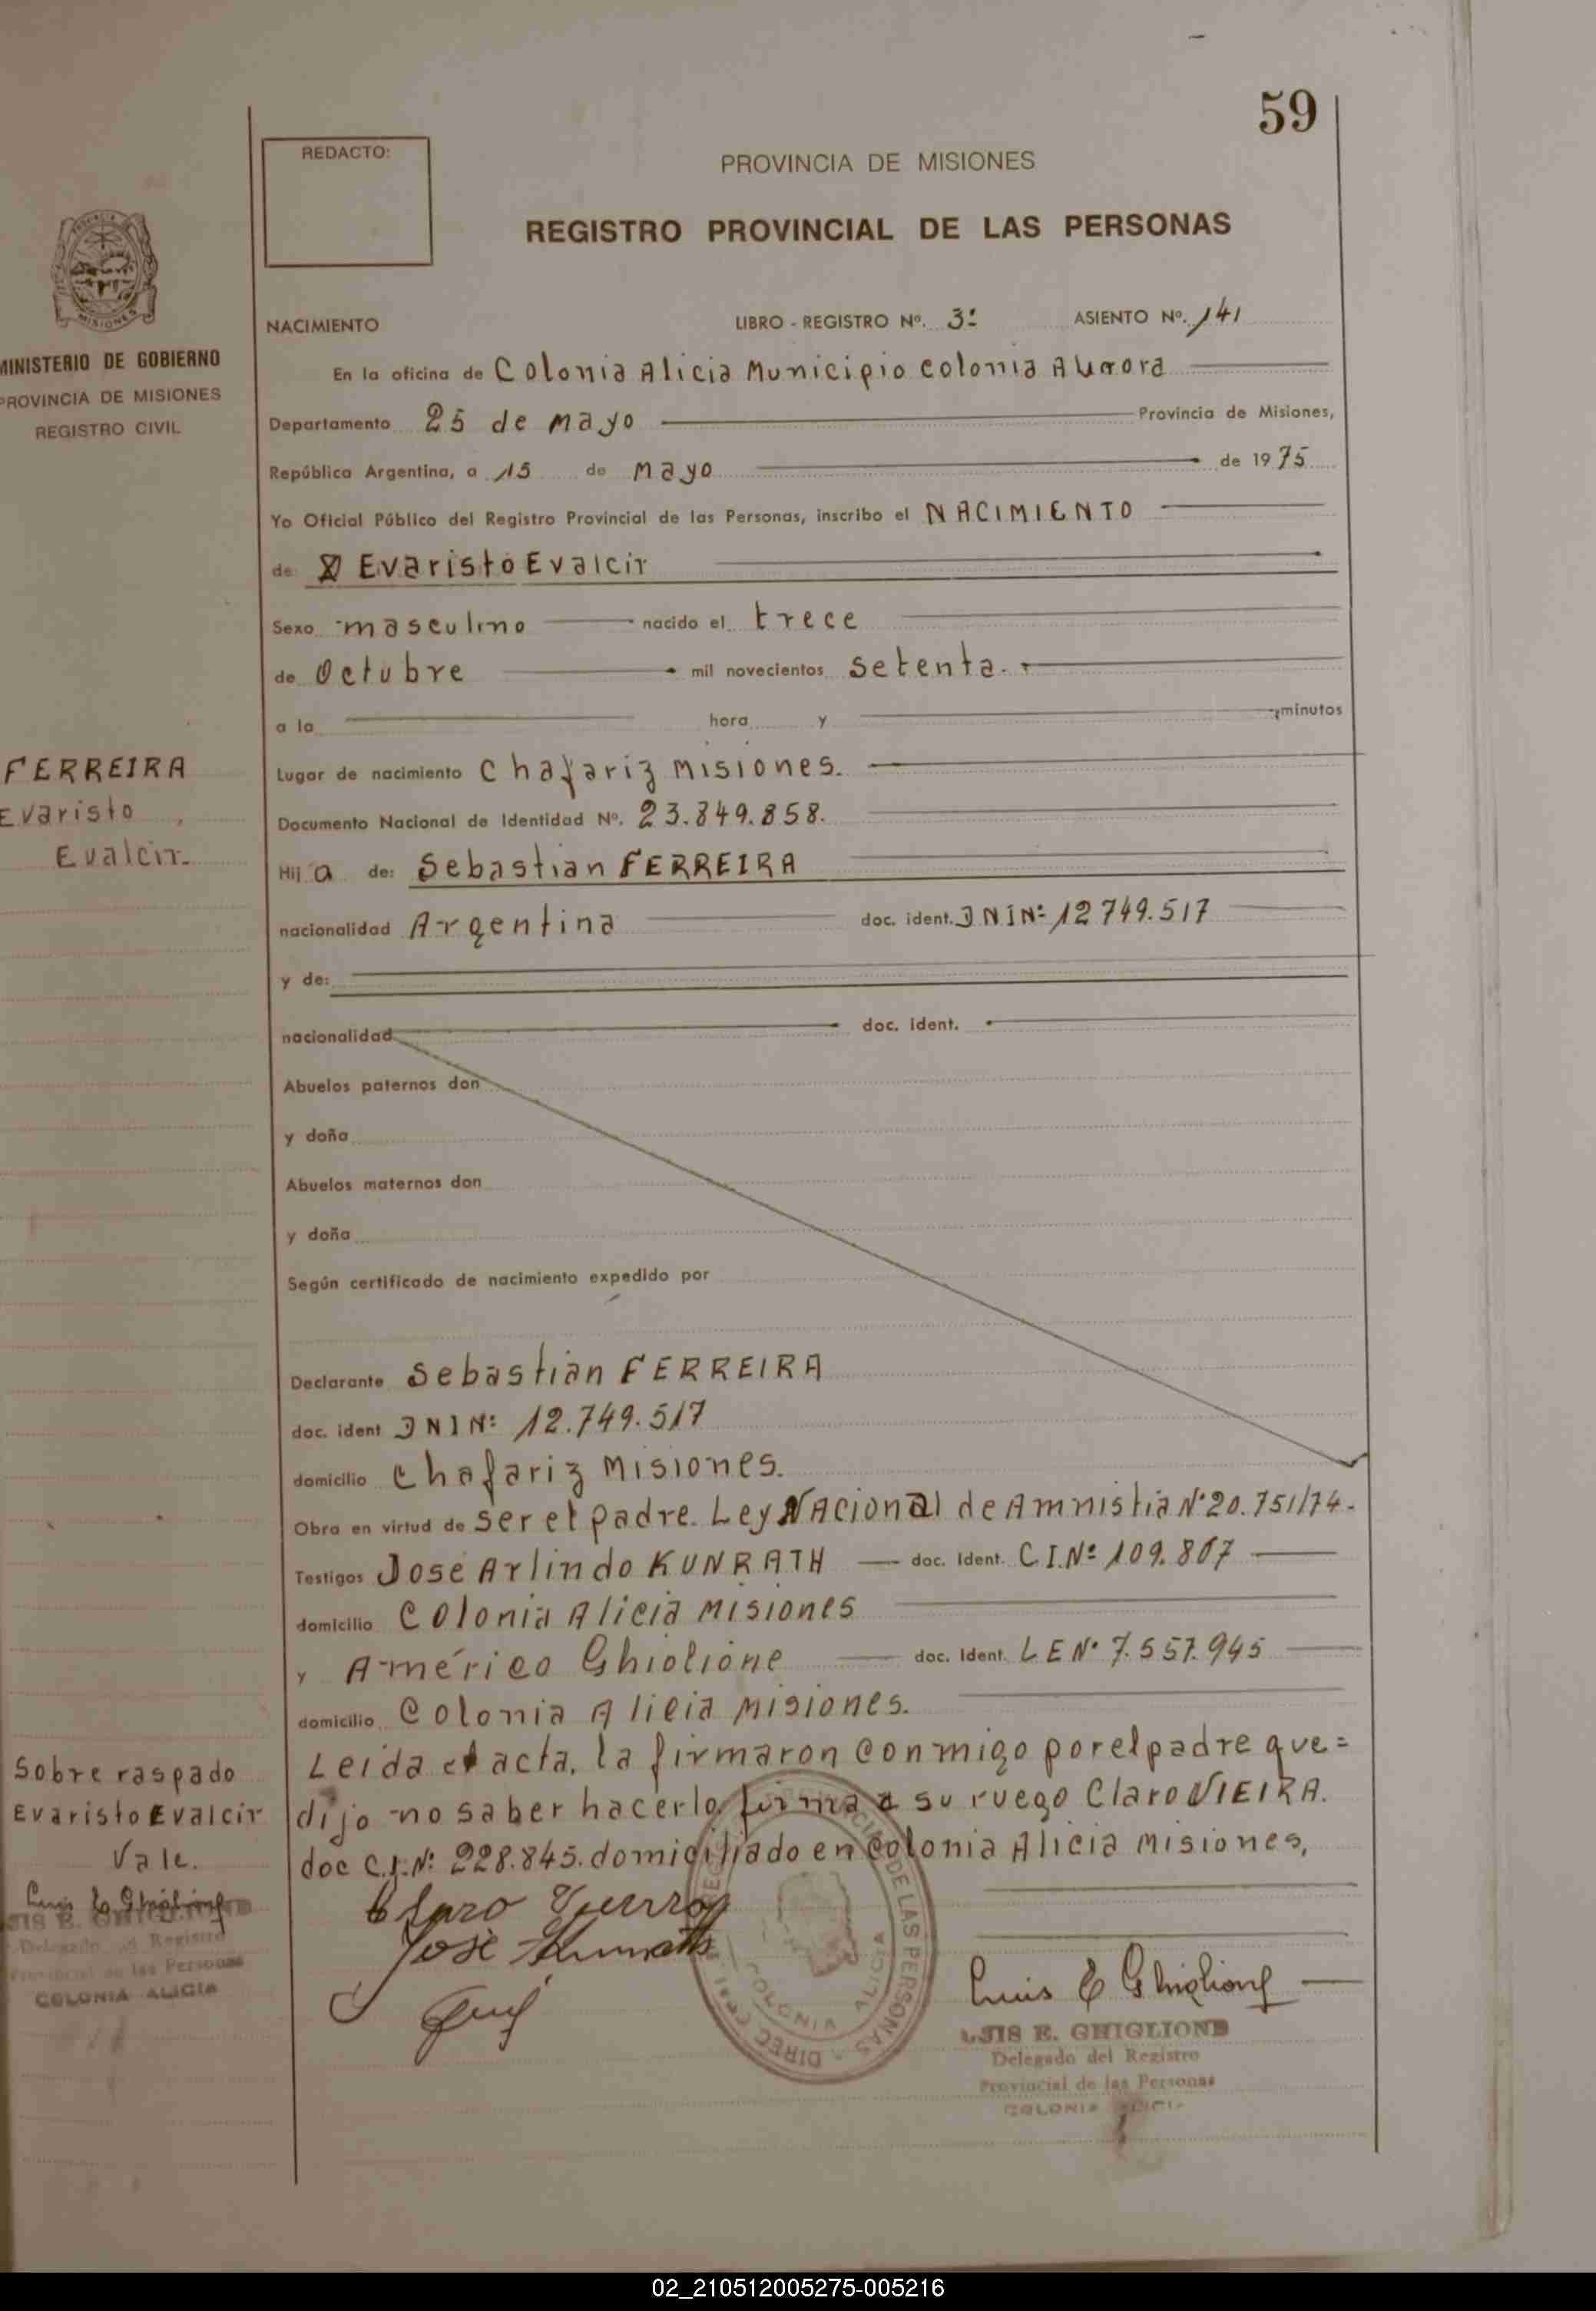 59
REDACTO:
PROVINCIA DE MISIONES
REGISTRO PROVINCIAL DE LAS PERSONAS
MISIONES
MINISTERIO DE GOBIERNO
PROVINCIA DE MISIONES
REGISTRO CIVIL
NACIMIENTO LIBRO - REGISTRO Nº. 3º ASIENTO Nº. 141
En la oficina de Colonia Alicia Municipio colonia Aurora
Departamento 25 de mayo Provincia de Misiones,
República Argentina, a 15 de mayo de 1975
Yo Oficial Público del Registro Provincial de las Personas, inscribo el NACIMIENTO
de Evaristo Evalcir
Sexo masculino nacido el trece
de Octubre mil novecientos setenta.
a la hora y minutos
FERREIRA
Evaristo
Evalcir.
Lugar de nacimiento Chafariz Misiones.
Documento Nacional de Identidad Nº. 23.849.858.
Hij a de: Sebastian FERREIRA
nacionalidad Argentina doc. ident. DNI Nº 12749.517
y de:
nacionalidad doc. ident.
Abuelos paternos don
y doña
Abuelos maternos don
y doña
Según certificado de nacimiento expedido por
Declarante Sebastian FERREIRA
doc. ident DNI Nº: 12.749.517
domicilio Chafariz Misiones.
Obra en virtud de ser el padre. Ley NAcional de Amnistia Nº 20.751/74.
Testigos José Arlindo KUNRATH doc. Ident. C.I.Nº 109.807
domicilio Colonia Alicia Misiones
y Américo Ghiolione doc. Ident. LE Nº 7.557.945
domicilio Colonia Alicia Misiones.
Leida el acta, la firmaron conmigo por el padre que=
dijo no saber hacerlo, firma a su ruego Claro VIEIRA.
doc C.I.Nº: 228.845. domiciliado en Colonia Alicia Misiones,
Sobre raspado
Evaristo Evalcir
Vale.
Luis E Ghiglione
LUIS E. GHIGLIONE
Delegado del Registro
Provincial de las Personas
COLONIA ALICIA
José Kunrath
DE LAS PERSONAS - DIREC
COLONIA ALICIA
Luis E Ghiglione
LUIS E. GHIGLIONE
Delegado del Registro
Provincial de las Personas
COLONIA ALICIA
02_210512005275-005216